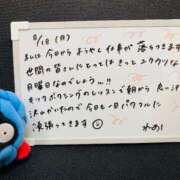 8/18 (月)
または今日からようやく仕事が落ちつきます
世間の皆さんにとってはきっとユウウツな
月曜日なのでしょう…!!
キックボクシングのレッスンで朝から
沢山かいたので今日も1日パワフルに
頑張ってきます